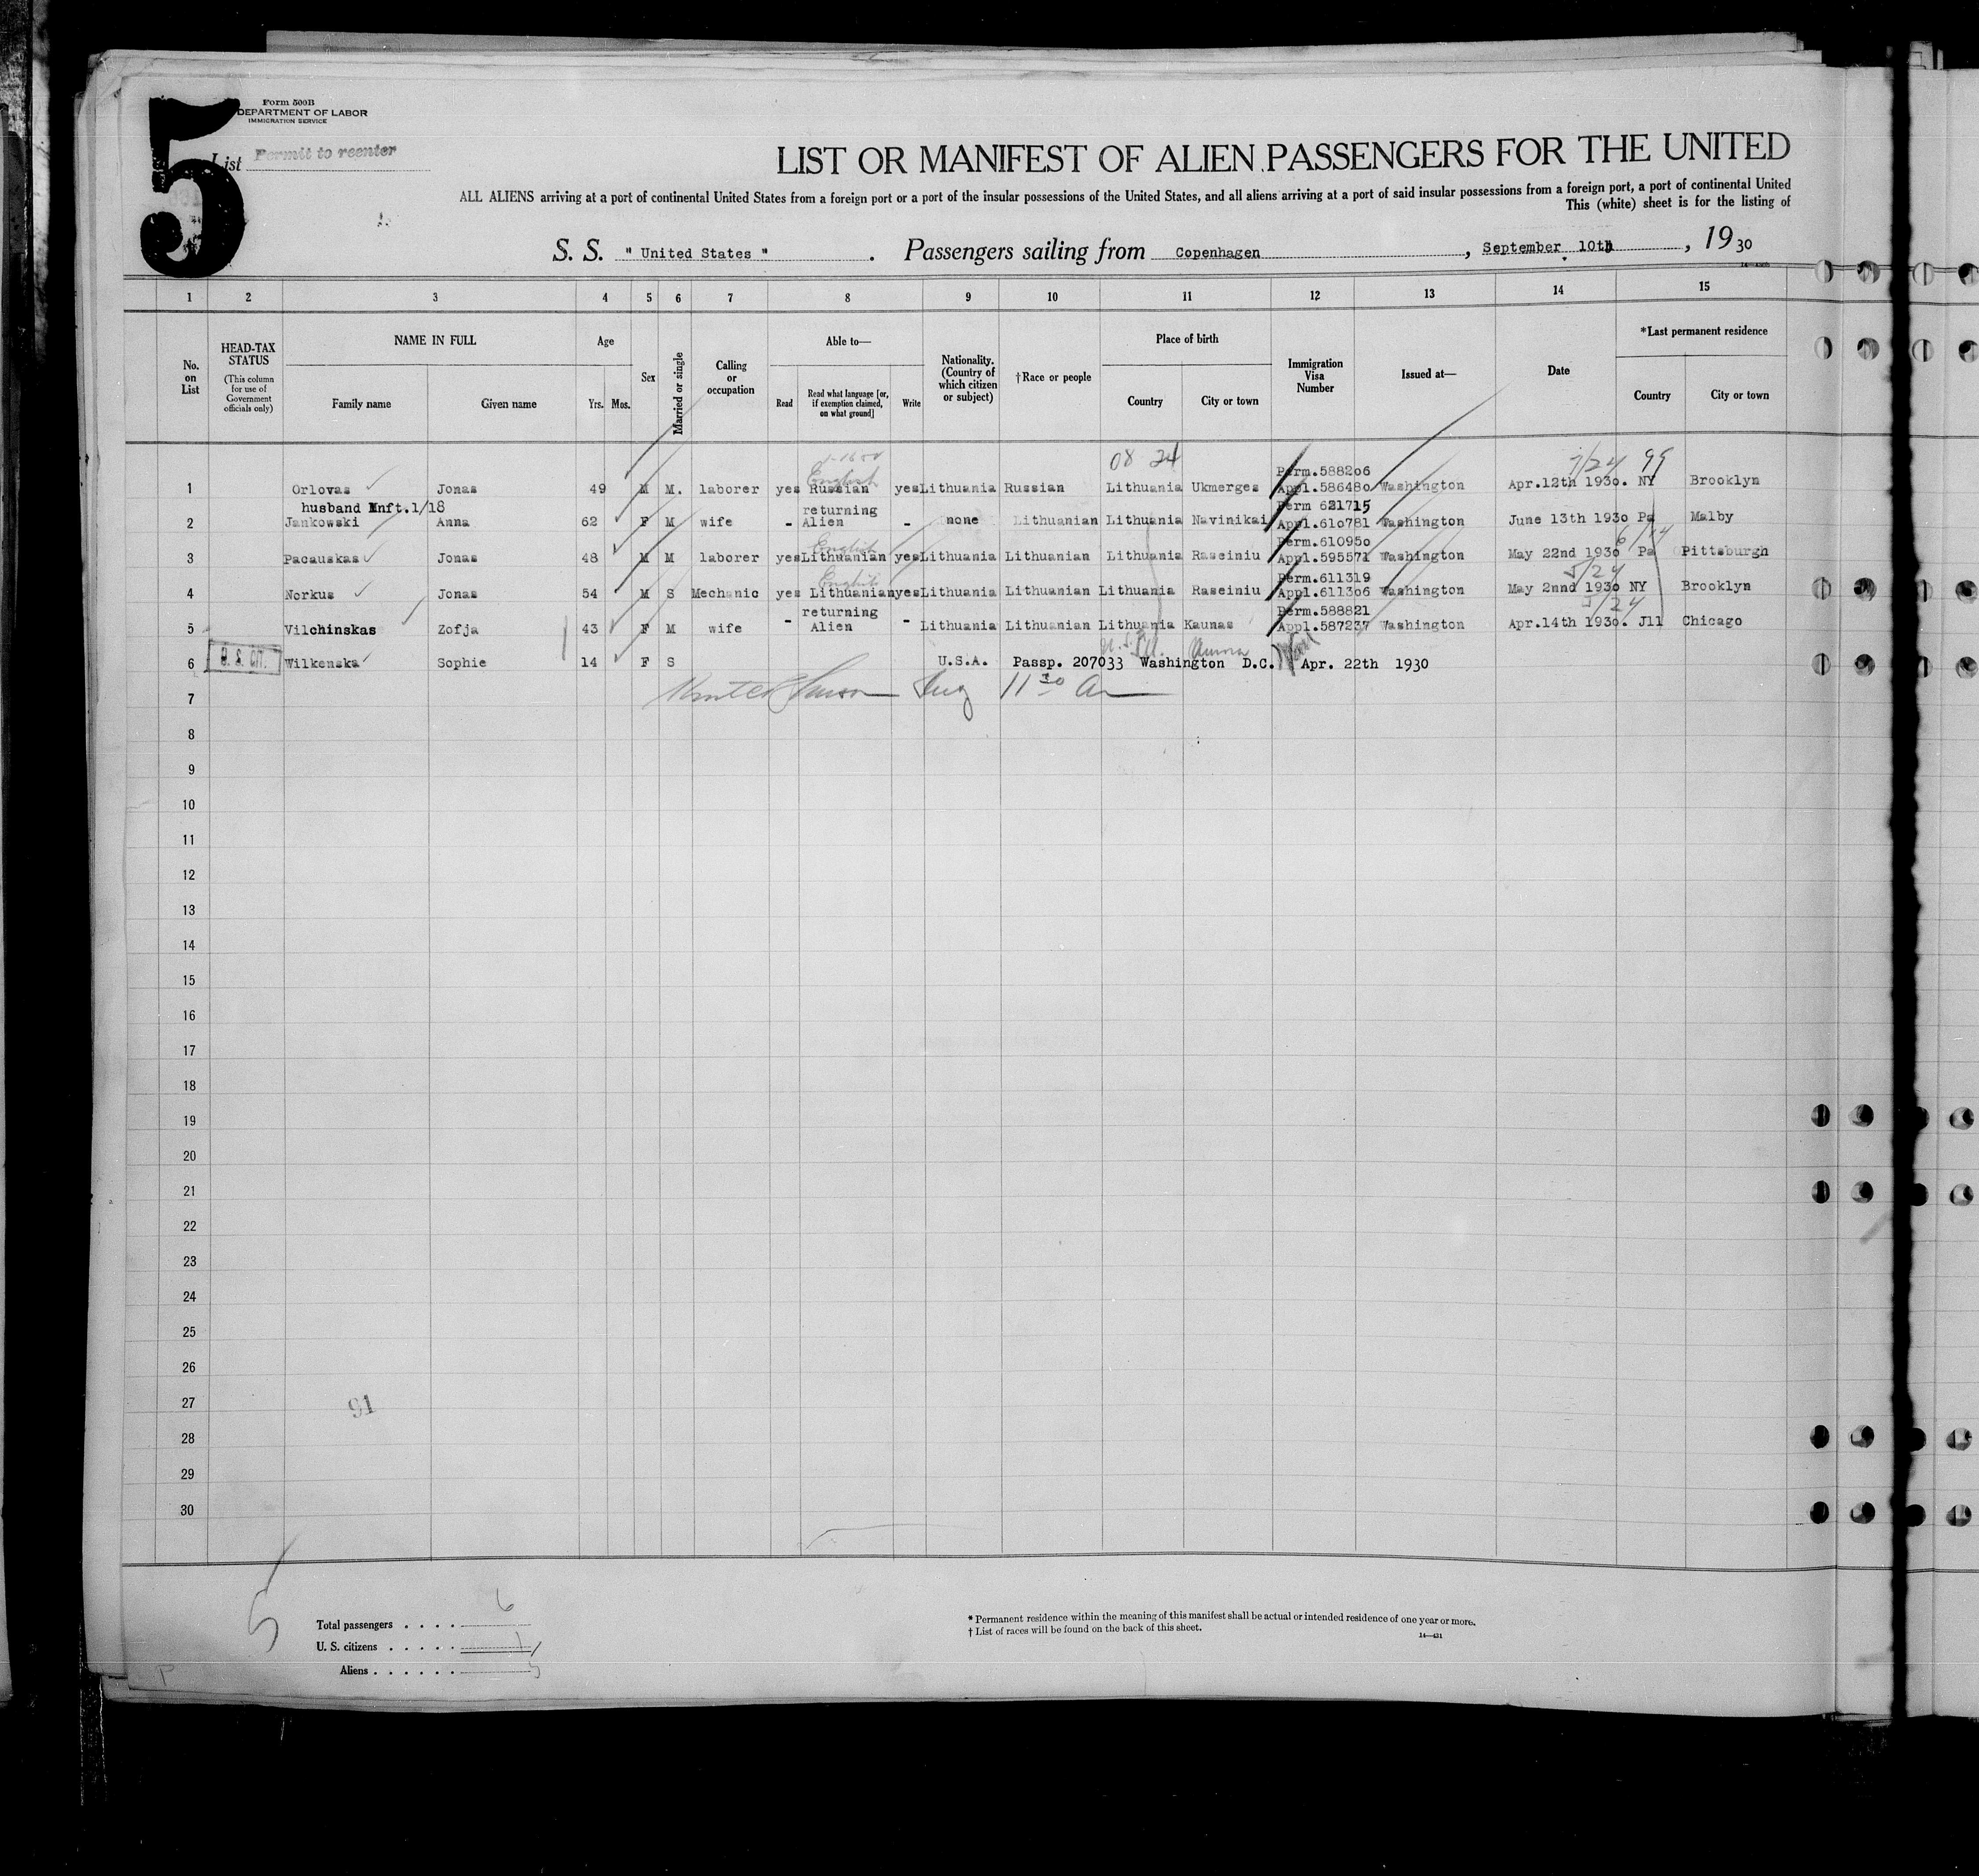 5
Form 500B
DEPARTMENT OF LABOR
IMMIGRATION SERVICE
List Permit to reenter
LIST OR MANIFEST OF ALIEN PASSENGERS FOR THE UNITED
ALL ALIENS arriving at a port of continental United States from a foreign port or a port of the insular possessions of the United States, and all aliens arriving at a port of said insular possessions from a foreign port, a port of continental United
This (white) sheet is for the listing of
S. S. " United States " . Passengers sailing from Copenhagen , September 10th , 1930
1 2 3 4 5 6 7 8 9 10 11 12 13 14 15
No. on List
HEAD-TAX STATUS (This column for use of Government officials only)
NAME IN FULL
Family name Given name
Age
Yrs. Mos.
Sex
Married or single
Calling or occupation
Able to—
Read Read what language [or, if exemption claimed, on what ground] Write
Nationality. (Country of which citizen or subject)
†Race or people
Place of birth
Country City or town
Immigration Visa Number
Issued at—
Date
*Last permanent residence
Country City or town
08 24 7/24 99
English Perm.588206
1 Orlovas Jonas 49 M M. laborer yes Russian yes Lithuania Russian Lithuania Ukmerges Appl.586480 Washington Apr.12th 1930. NY Brooklyn
husband Mnft.1/18 returning Perm 621715
2 Jankowski Anna 62 F M wife - Alien - none Lithuanian Lithuania Navinikai Appl.610781 Washington June 13th 1930 Pa Malby
English Perm.610950
3 Pacauskas Jonas 48 M M laborer yes Lithuanian yes Lithuania Lithuanian Lithuania Raseiniu Appl.595571 Washington May 22nd 1930 Pa Pittsburgh
English Perm.611319 5/24
4 Norkus Jonas 54 M S Mechanic yes Lithuanian yes Lithuania Lithuanian Lithuania Raseiniu Appl.611306 Washington May 2nnd 1930 NY Brooklyn
returning Perm.588821 5/24
5 Vilchinskas Zofja 43 F M wife - Alien - Lithuania Lithuanian Lithuania Kaunas Appl.587237 Washington Apr.14th 1930. Jll Chicago
6 U.S. CIT. Wilkenska Sophie 14 F S U.S.A. Passp. 207033 Washington D.C. Apr. 22th 1930
7 11 30 A
8
9
10
11
12
13
14
15
16
17
18
19
20
21
22
23
24
25
26
27
91
28
29
30
5
Total passengers . . . . 6
U. S. citizens . . . . . 1
Aliens . . . . . . 5
* Permanent residence within the meaning of this manifest shall be actual or intended residence of one year or more.
† List of races will be found on the back of this sheet.
14—431